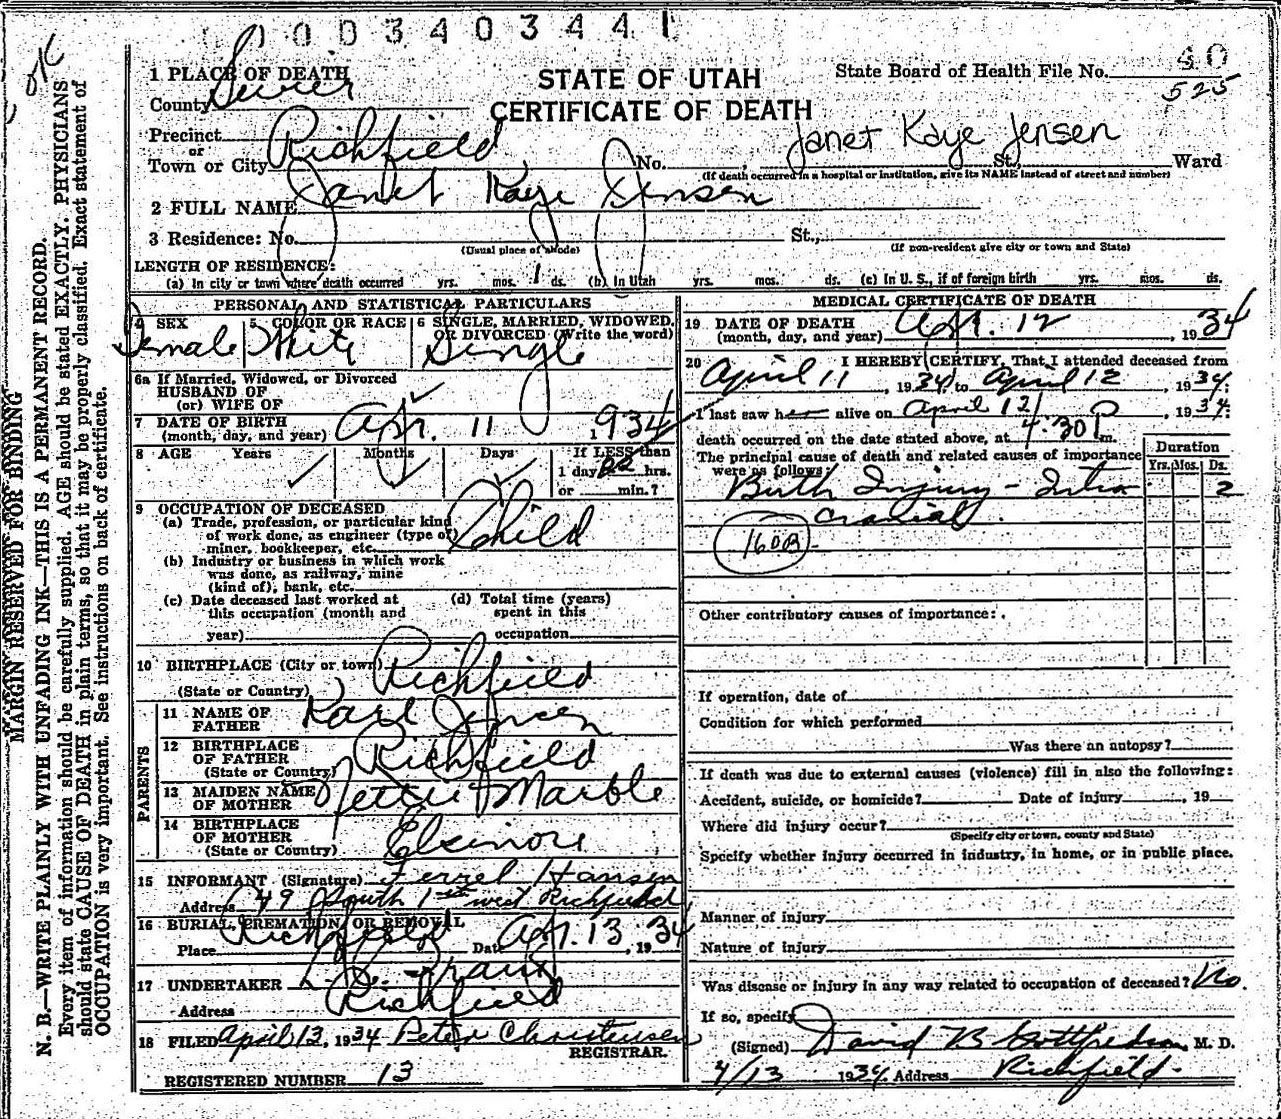 0003403441
OK
MARGIN RESERVED FOR BINDING
N. B.—WRITE PLAINLY WITH UNFADING INK—THIS IS A PERMANENT RECORD.
Every item of information should be carefully supplied. AGE should be stated EXACTLY. PHYSICIANS
should state CAUSE OF DEATH in plain terms, so that it may be properly classified. Exact statement of
OCCUPATION is very important. See instructions on back of certificate.
STATE OF UTAH
CERTIFICATE OF DEATH
State Board of Health File No. 40
525
1 PLACE OF DEATH
County Sevier
Precinct
or
Town or City Richfield No. St., Ward
Janet Kaye Jensen
(If death occurred in a hospital or institution, give its NAME instead of street and number)
2 FULL NAME Janet Kaye Jensen
3 Residence: No. St.,
(Usual place of abode) (If non-resident give city or town and State)
LENGTH OF RESIDENCE:
(a) In city or town where death occurred yrs. mos. 1 ds. (b) In Utah yrs. mos. ds. (c) In U. S., if of foreign birth yrs. mos. ds.
PERSONAL AND STATISTICAL PARTICULARS
4 SEX Female
5 COLOR OR RACE White
6 SINGLE, MARRIED, WIDOWED, OR DIVORCED (Write the word) Single
6a If Married, Widowed, or Divorced
HUSBAND OF
(or) WIFE OF
7 DATE OF BIRTH
(month, day, and year) Apr. 11 1934
8 AGE Years Months Days If LESS than
1 day hrs.
or min.?
9 OCCUPATION OF DECEASED
(a) Trade, profession, or particular kind
of work done, as engineer (type of)
miner, bookkeeper, etc. Child
(b) Industry or business in which work
was done, as railway, mine
(kind of), bank, etc.
(c) Date deceased last worked at
this occupation (month and
year)
(d) Total time (years)
spent in this
occupation
10 BIRTHPLACE (City or town) Richfield
(State or Country)
PARENTS
11 NAME OF
FATHER Karl Jensen
12 BIRTHPLACE
OF FATHER Richfield
(State or Country)
13 MAIDEN NAME
OF MOTHER Nettie Marble
14 BIRTHPLACE
OF MOTHER Elsinore
(State or Country)
15 INFORMANT (Signature) Ferrel Hansen
Address 49 South 1st west Richfield
16 BURIAL, CREMATION, OR REMOVAL
Place Richfield Date Apr. 13, 1934
17 UNDERTAKER
Address Richfield
18 FILED April 13, 1934 Peter Christensen
REGISTRAR.
REGISTERED NUMBER 13
MEDICAL CERTIFICATE OF DEATH
19 DATE OF DEATH
(month, day, and year) Apr. 12, 1934
20 I HEREBY CERTIFY, That I attended deceased from
April 11, 1934 to April 12, 1934:
I last saw her alive on April 12, 1934:
death occurred on the date stated above, at 4:30 P m.
The principal cause of death and related causes of importance
were as follows:
Duration
Yrs. Mos. Ds.
Birth Injury - Intra 2
cranial.
160B
Other contributory causes of importance:
If operation, date of
Condition for which performed
Was there an autopsy?
If death was due to external causes (violence) fill in also the following:
Accident, suicide, or homicide? Date of injury, 19
Where did injury occur?
(Specify city or town, county and State)
Specify whether injury occurred in industry, in home, or in public place.
Manner of injury
Nature of injury
Was disease or injury in any way related to occupation of deceased? No.
If so, specify
(Signed) David B. Gottfredson, M. D.
4/13 1934. Address Richfield.